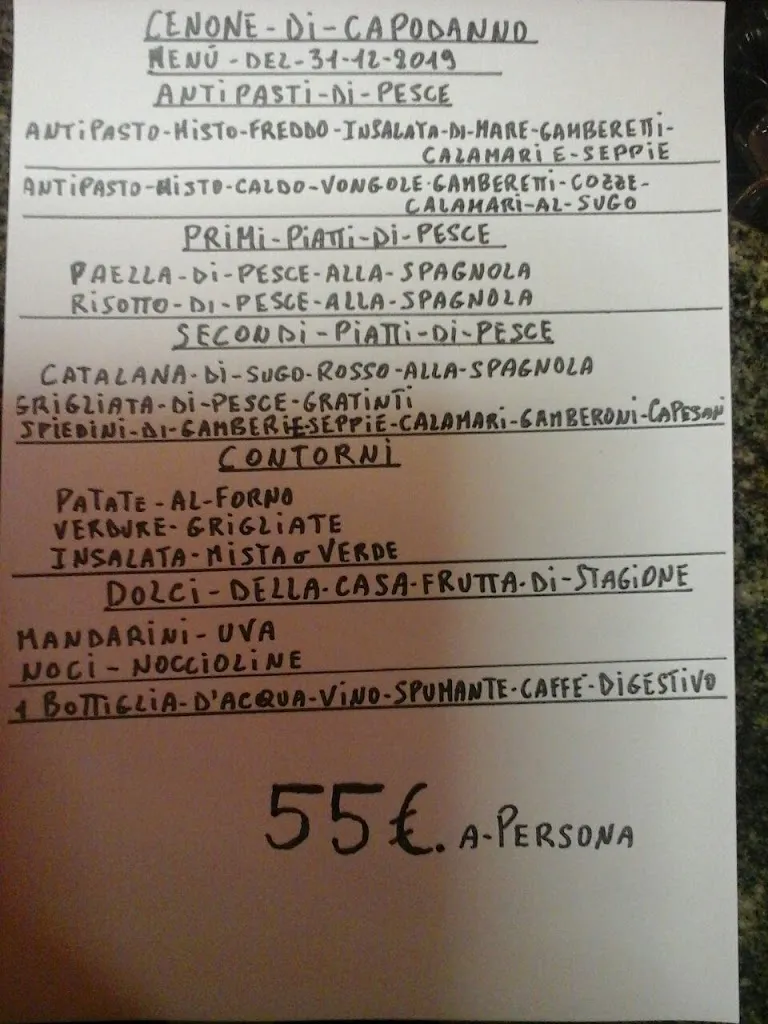 CENONE-Di-CAPODANNO
MENÚ-DEL-31-12-2019
ANTIPASTI-Di-PESCE
ANTIPASTO-MISTO-FREDDO-INSALATA-DI-MARE-GAMBERETTI-
CALAMARI E-SEPPIE
ANTIPASTO-MISTO-CALDO-VONGOLE-GAMBERETTI-COZZE-
CALAMARI-AL-SUGO
PRIMI-PIATTI-DI-PESCE
PAELLA-DI-PESCE-ALLA-SPAGNOLA
RISOTTO-DI-PESCE-ALLA-SPAGNOLA
SECONDI-PIATTI-DI-PESCE
CATALANA-Di-SUGO-ROSSO-ALLA-SPAGNOLA
GRIGLIATA-DI-PESCE-GRATINTI
SPIEDINI-DI-GAMBERIESEPPIE-CALAMARI-GAMBERONI-CAPESAN
CONTORNI
PATATE-AL-FORNO
VERDURE-GRIGLIATE
INSALATA-MISTA o VERDE
DOLCI-DELLA-CASA-FRUTTA-Di-STAGIONE
MANDARINI-UVA
NOCI-NOCCIOLINE
1 BOTTIGLIA-D'ACQUA-VINO-SPUMANTE-CAFFÉ-DIGESTIVO
55€. A-PERSONA